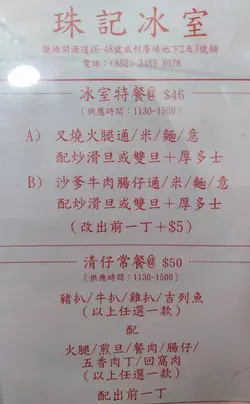 珠記冰室
觀塘開源道46-48號威利廣場地下2及3號舖
電話：(852) 3489 8028
冰室特餐@ $46
[ 供應時間：1130-1500 ]
A) 叉燒火腿通/米/麵/意
配炒滑旦或雙旦＋厚多士
B) 沙爹牛肉腸仔通/米/麵/意
配炒滑旦或雙旦＋厚多士
(改出前一丁＋$5)
清仔常餐@ $50
[ 供應時間：1130-1500 ]
豬扒/牛扒/雞扒/吉列魚
(以上任選一款)
配
火腿/煎旦/餐肉/腸仔/
五香肉丁/回窩肉
(以上任選一款)
配出前一丁